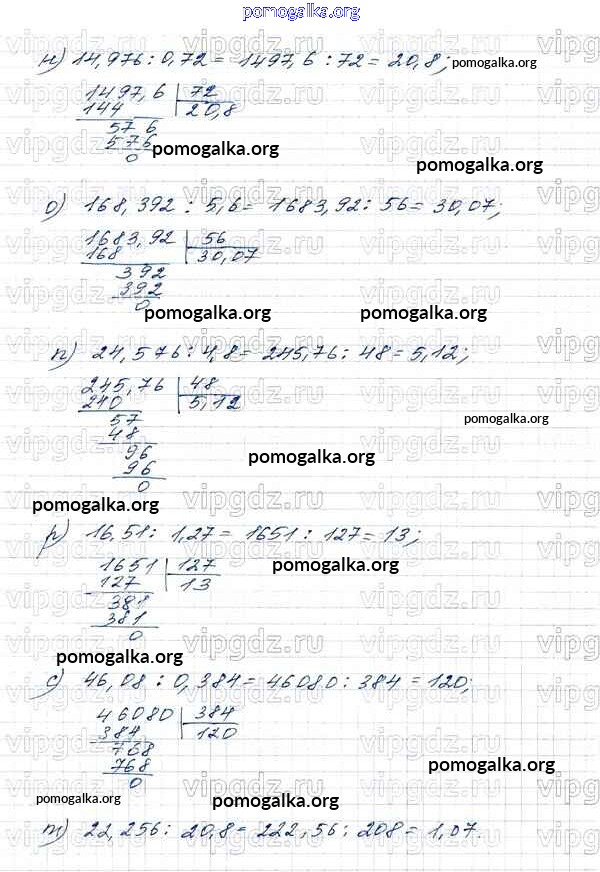 pomogalka.org
н) 14,976 : 0,72 = 1497,6 : 72 = 20,8; pomogalka.org
1497,6 | 72
144 | 20,8
57 6
57 6
0
pomogalka.org
pomogalka.org
о) 168,392 : 5,6 = 1683,92 : 56 = 30,07;
1683,92 | 56
168 | 30,07
392
392
0
pomogalka.org
pomogalka.org
п) 24,576 : 4,8 = 245,76 : 48 = 5,12;
245,76 | 48
240 | 5,12
57
48
96
96
0
pomogalka.org
pomogalka.org
pomogalka.org
р) 16,51 : 1,27 = 1651 : 127 = 13;
1651 | 127
127 | 13
381
381
0
pomogalka.org
pomogalka.org
с) 46,08 : 0,384 = 46080 : 384 = 120;
46080 | 384
384 | 120
768
768
0
pomogalka.org
pomogalka.org
pomogalka.org
т) 22,256 : 20,8 = 222,56 : 208 = 1,07.
vipgdz.ru